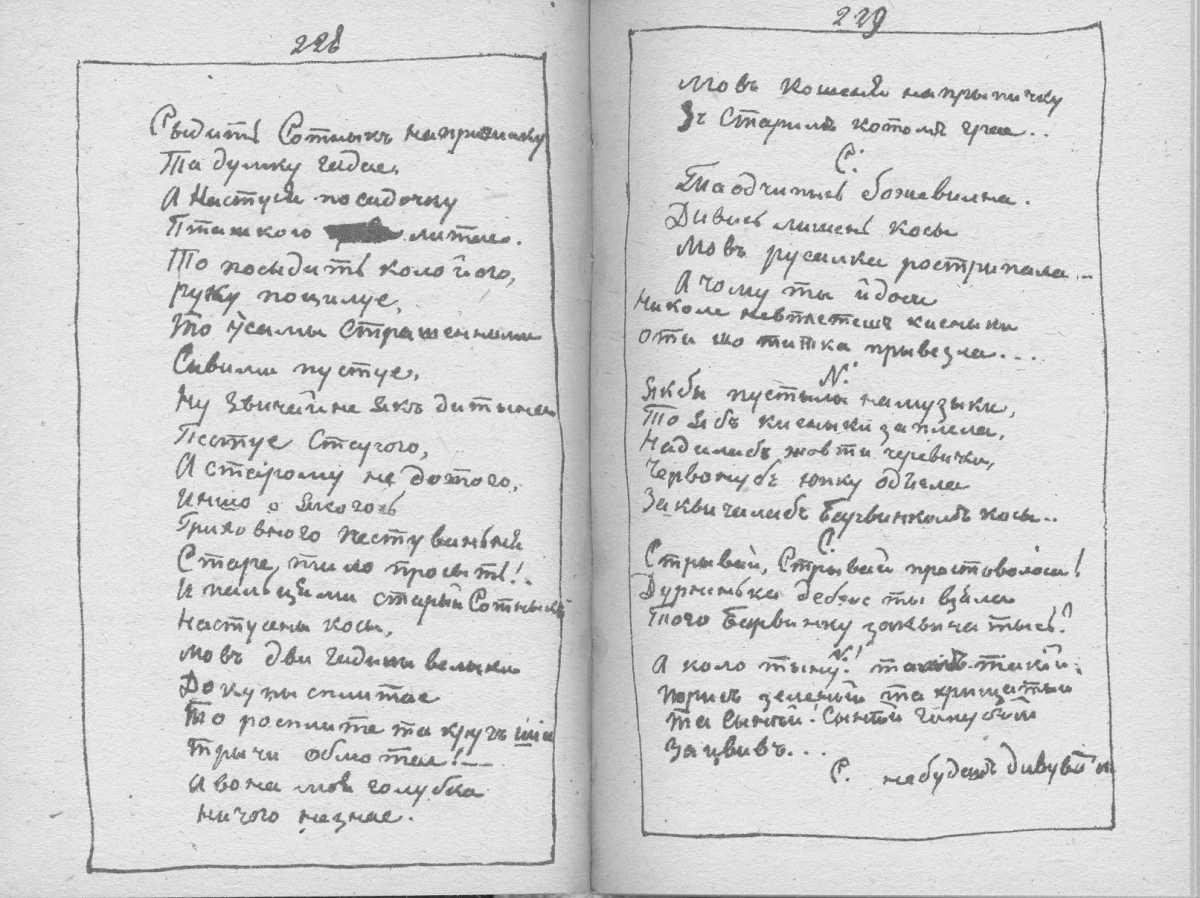 228
Сыдить Сотныкъ на прызьбу
Та думку гадае,
А Настуся по садочку
Пташкою литае.
То посыдить коло ёго,
руку поцилуе,
То усамы страшенными
Сивими пустуе,
Ну звичайне якъ дитына
Пестуе старого,
А старому не до того,
Иншо о якогось
Гриховного пестування
Старе, тило просыть!..
И пальцями старый Сотныкъ
Настусины косы,
Мовъ дви гадины велыки
Докупы сплитае
То росплите та кругъ шіи
Трычи обмотае!—
А вона мов голубка
Ничого незнае.
229
Мовъ кошеня на прыпичку
Зъ старимъ котомъ грае..
С:
Та одчипысь божевилна.
Дивись лишень косы
Мовъ русалка ростріпала...
А чому ты йдоси
Николи невплетешъ кисныки
Оти що титка прывезла...
N:
Якбы пустылы на музыки,
То ябъ кисныки заплела,
Надилабъ жовти черевички,
Червонубъ юпку одяла
Заквичалабъ барвинкомъ косы..
С:
Стрывай, Стрывай простоволоса!
Дурненька дебже ты взяла
Того барвинку заквичатысь?
N:
А коло тыну! такій.
порись зеленый та хрищатый
та Сыній! Сыній голубый
Зацвивъ...
С. небудешъ дивуват